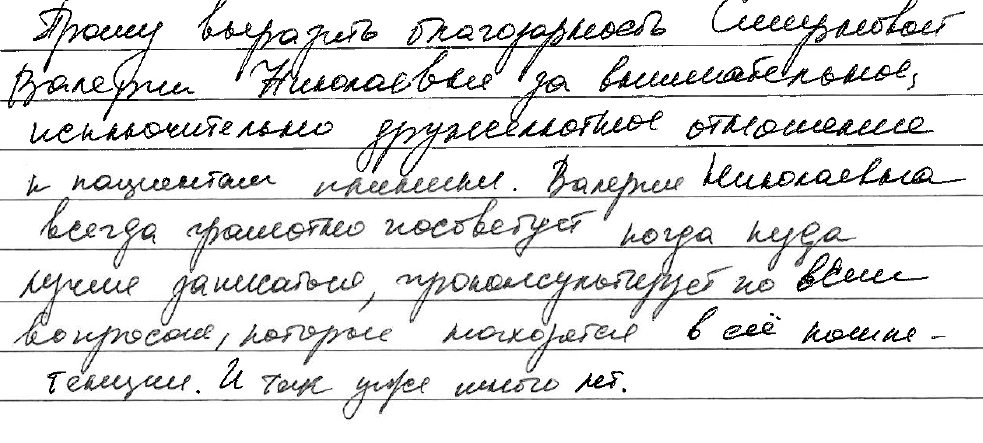 Прошу выразить благодарность Смирновой
Валерии Николаевне за внимательное,
исключительно дружелюбное отношение
к пациентам клиники. Валерия Николаевна
всегда грамотно посоветует когда куда
лучше записаться, проконсультирует по всем
вопросам, которые находятся в её компе-
тенции. И так уже много лет.